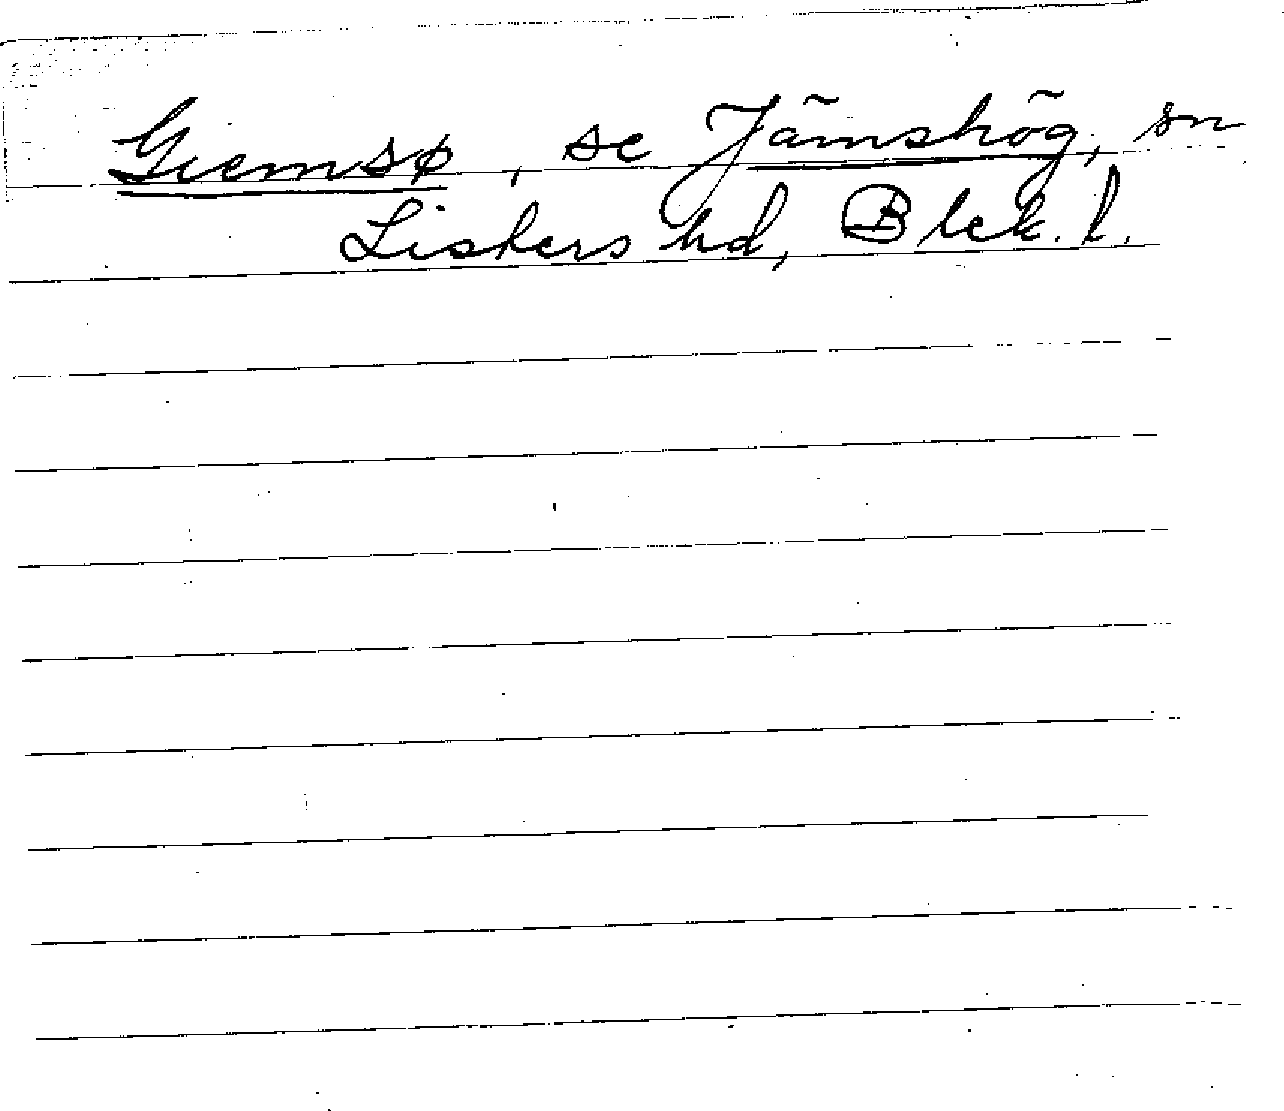 Giemsø, se Jämshög, sn
Listers hd, Blek. l.